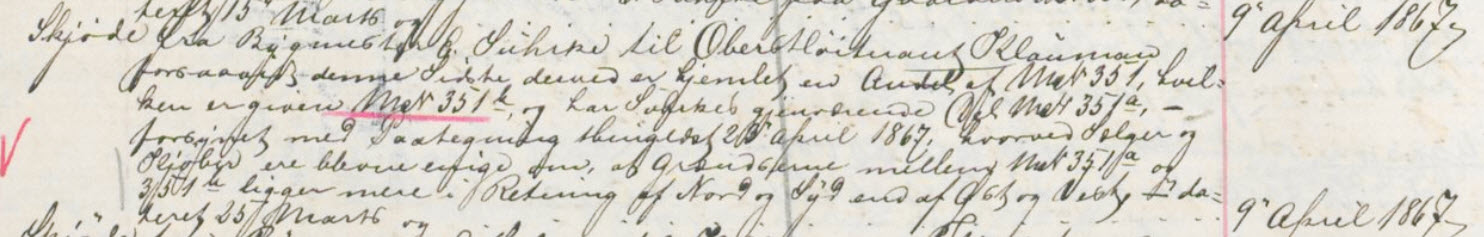 teret 15 Marts og 9 April 1867,
Skjøde fra Bygmester E. Suhrke til Oberstlöitnant Klauman
forsaavidt denne Sidste derved er hjemlet en Andel af Mat 351, hvil-
ken er given Mat 351 b, og har Suhrkes gjenværende Deel Mat 351 a, —
forsynet med Paategning thinglæst April 1867, hvorved Sælger og
Kjøber ere blevne enige om, at Grændserne mellem Mat 351 a og
351 b ligger mere i Retning af Nord og Syd end af Øst og Vest, da-
teret 25 Marts og 9 April 1867